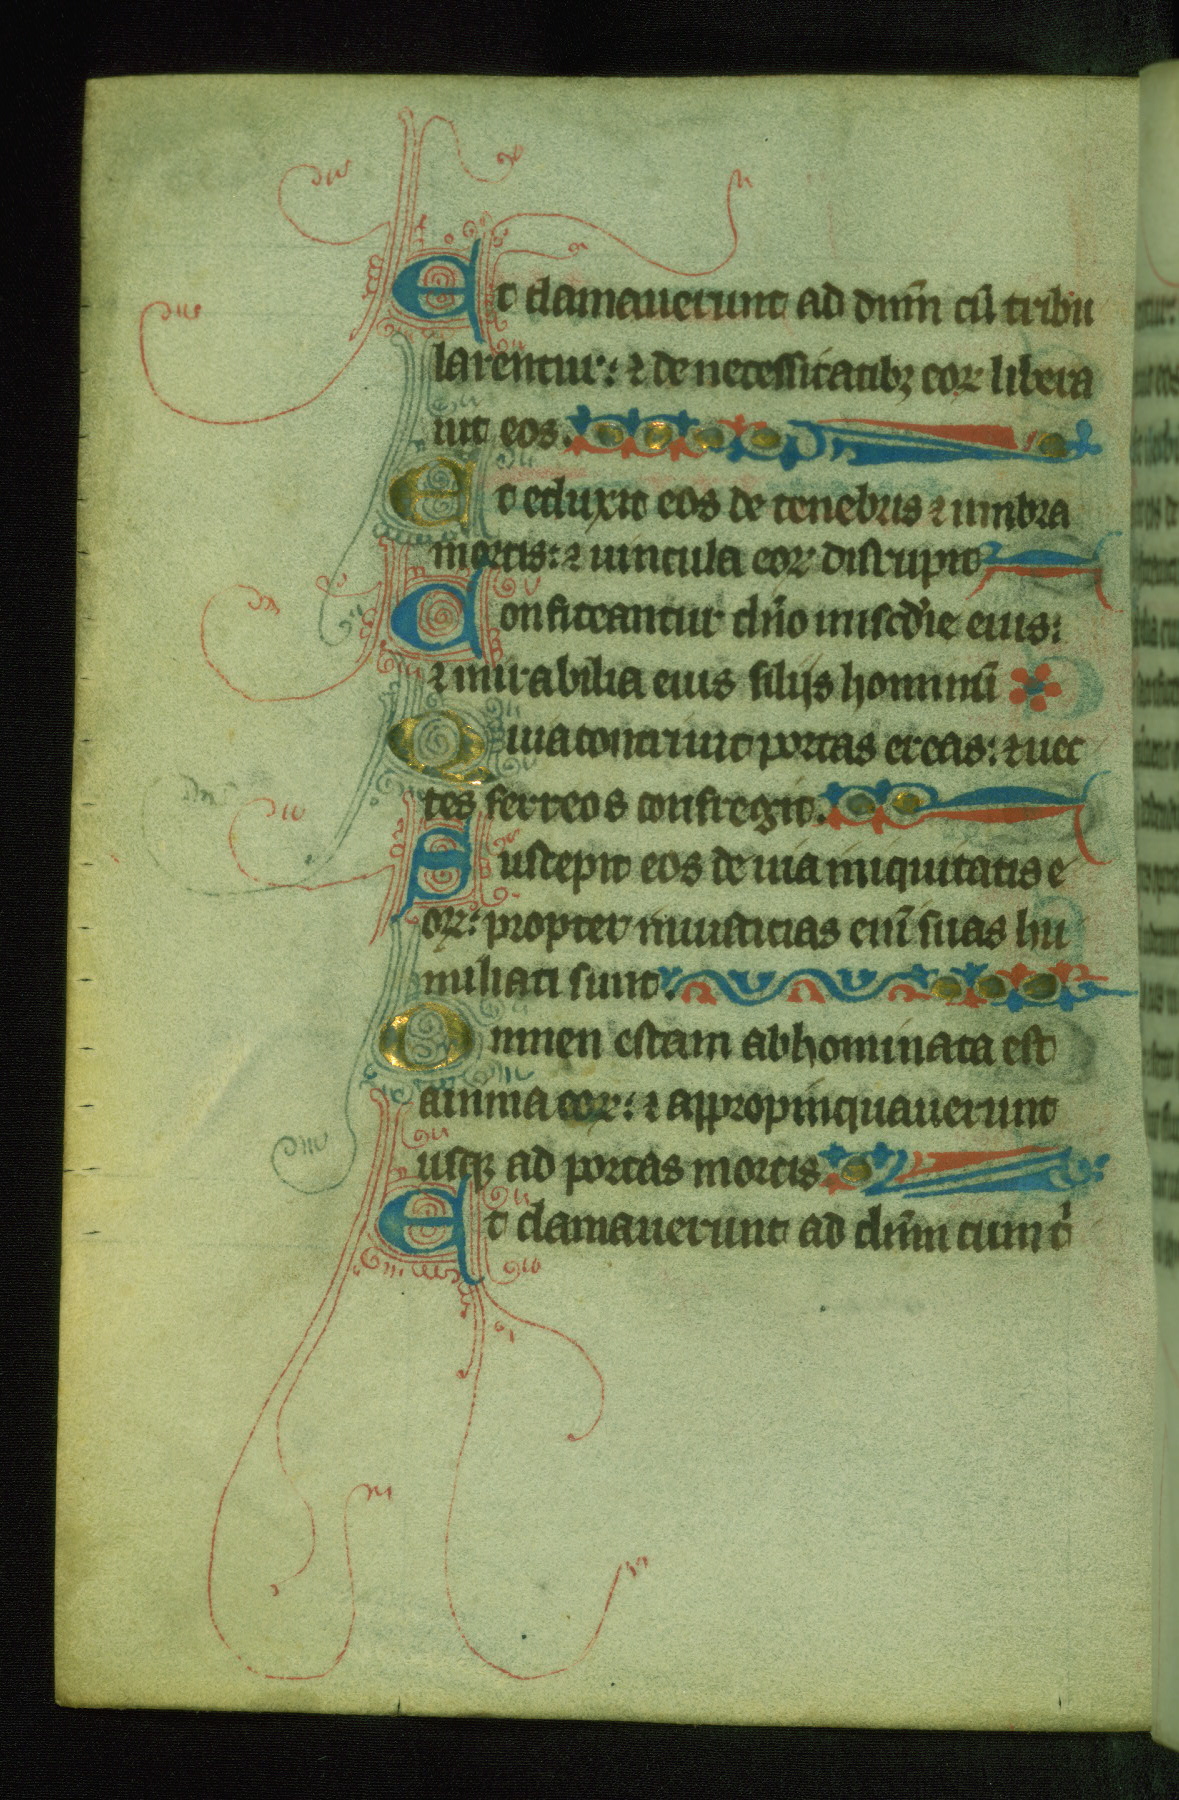 Et clamauerunt ad dn̄m cū tribu
larentur: ⁊ de necessitatibꝫ eoꝝ libera
uit eos.
Et eduxit eos de tenebris ⁊ umbra
mortis: ⁊ uincula eoꝝ disrupit
Confiteantur dn̄o misc̄die eius:
⁊ mirabilia eius filijs hominū
Quia contriuit portas ereas: ⁊ uec
tes ferreos confregit.
Suscepit eos de uia iniquitatis e
oꝝ: propter iniusticias enī suas hu
miliati sunt.
Omnen escam abhominata est
anima eoꝝ: ⁊ appropinquauerunt
usqꝫ ad portas mortis
Et clamauerunt ad dn̄m cum t̾